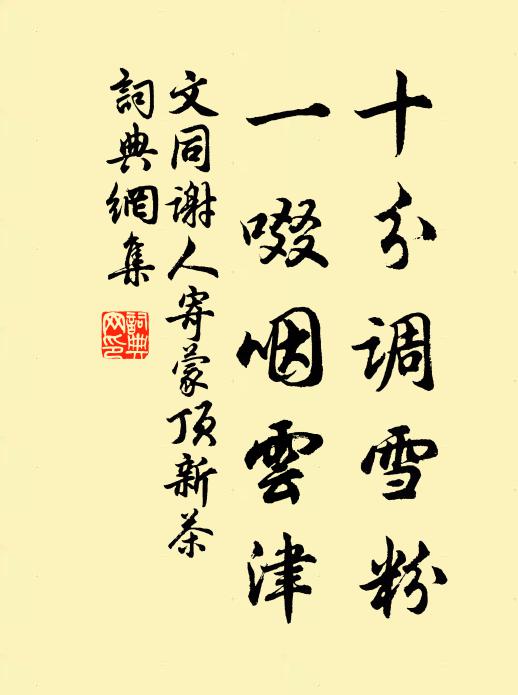 十分调雪粉
一啜咽雲津
文同谢人寄蒙顶新茶
詞典網集
詞典網印